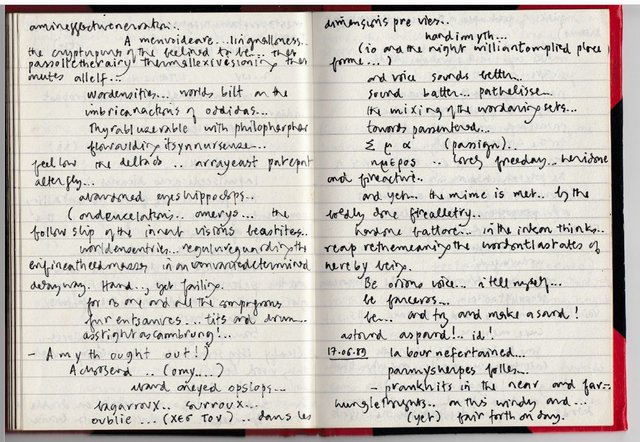 amineffectiveneration..
A menvoideare... lingualloness..
the cryptupuns of the feelined to be... then
passolletherairy thermallexivesioning then
mutes allelf...
wordensities... words bilt on the
imbricanactions of oddidas...
Thyrabluzerable with philopherpher
flowaulding itsynnursenze...
feel low the deltads .. arrayeast patcent
alterfly...
abandoned eyeshippocrips...
Condencelations.. omerys... the
followship of the innent visions beastites..
worldensentries.. regulureguarding the
in an
delay way. Hand.., yet failing.
for is one and all this
furentsanves... tits and drum...
asstightascambrung!..
- A myth ought out!)
A choosend .. (omy....)
ward oneyed opslops...
bagarroux.. surroux...
oublie ... (χες του) .. dans les
dimensions pre vies..
hard in myth...
(io and the night william complied place)
forme...)
and voice sounds better..
sound batter... pathelisse...
the mixing of the wordaring sets...
towards passentered...
Σ μ α (passign)..
ημερος .. loves freeday... heridone
and fireactive..
and yet.. the mime is met.. by the
wedly done firealletry..
handsome battore.. in the inkon thinks..
reap rethemeaning the wordontlastates of
nere by being.
Be orions voice... i tell myself...
be fanceros...
be... and try and make a sand!
astound aspand!.. id!
17.06.89 la bour nefertained...
panmysherpes folles...
- prankhits in the near and far..
hungle thights.. on this windey and...
(yet) fair forth on day.